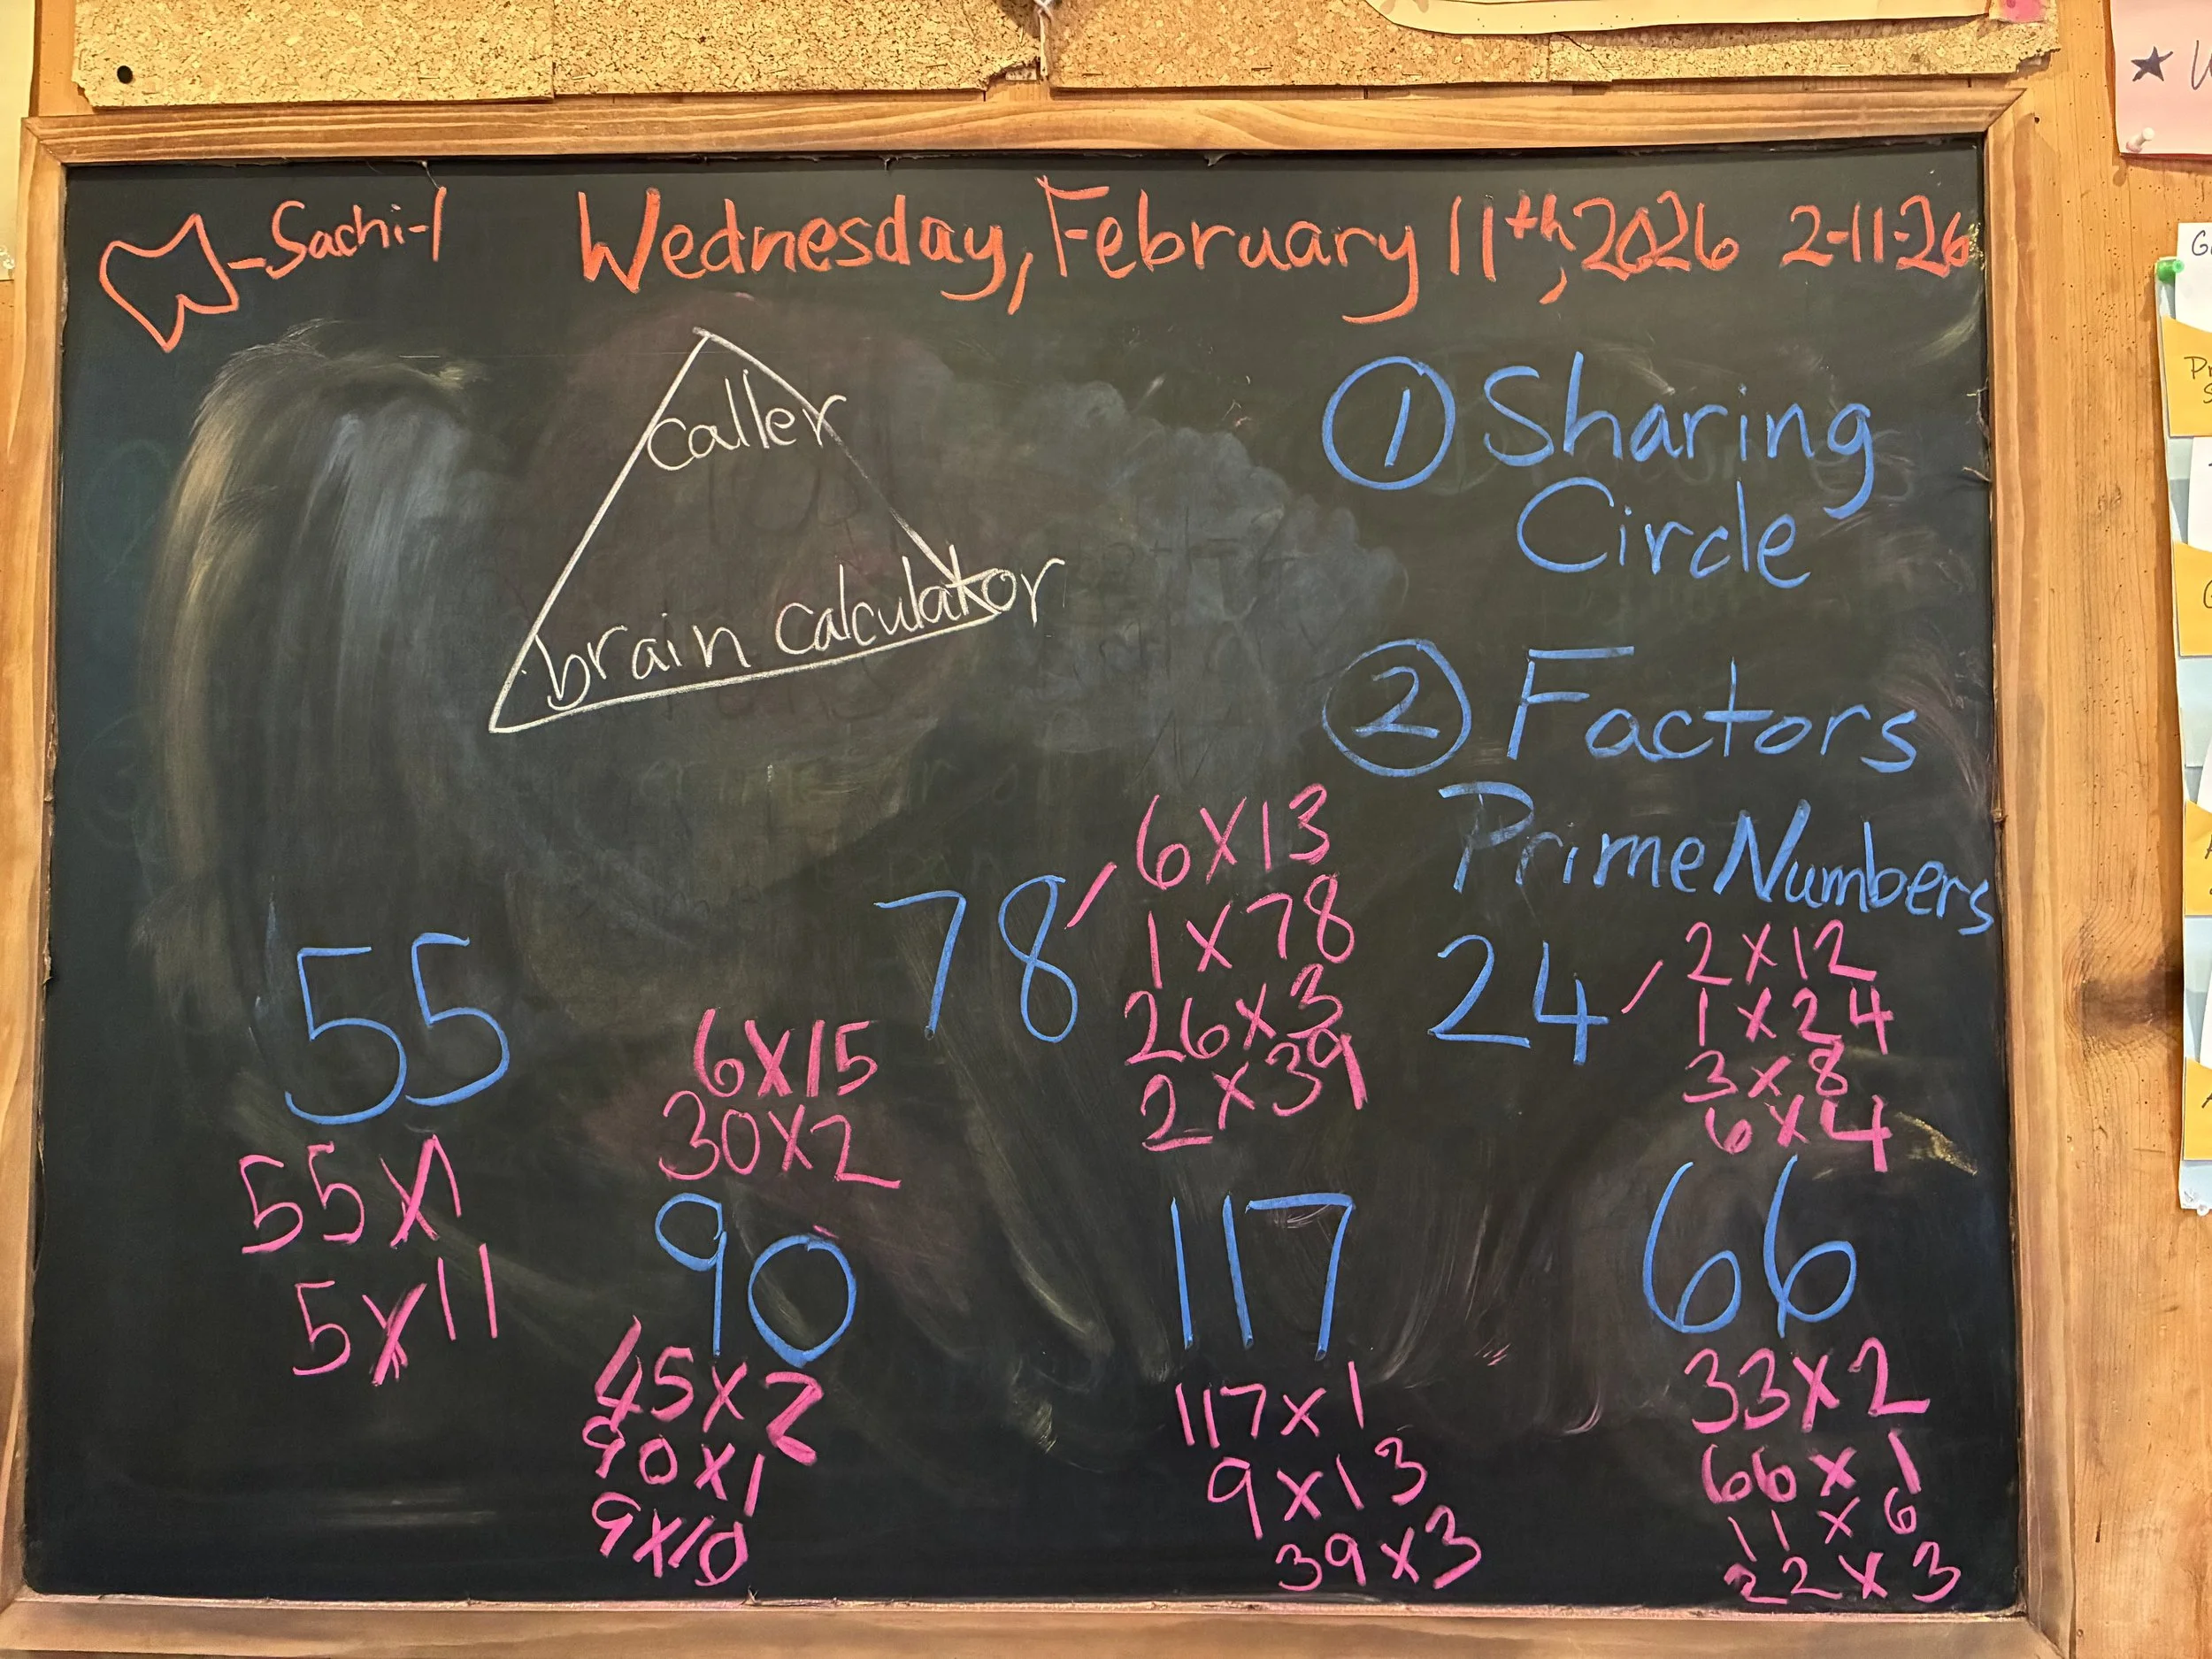 -Sachi-1
Wednesday, February 11th, 2026 2-11-26
caller
brain calculator
① Sharing
Circle
② Factors
Prime Numbers
55
55x1
5x11
6x15
30x2
90
45x2
90x1
9x10
78
6x13
1x78
26x3
2x39
117
117x1
9x13
39x3
24
2x12
1x24
3x8
6x4
66
33x2
66x1
11x6
22x3